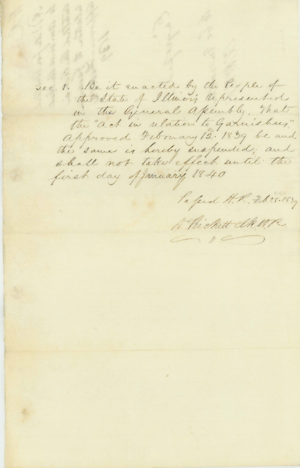 Sec 1. Be it enacted by the People of
the State of Illinois Represented
in the General Assembly, That
the "Act in relation to Garnishees"
Approved February 12. 1839 be and
the same is hereby suspended, and
shall not take effect until the
first day of January 1840
Passed H.R. Feb 28 1839
D Prickett Clk H R